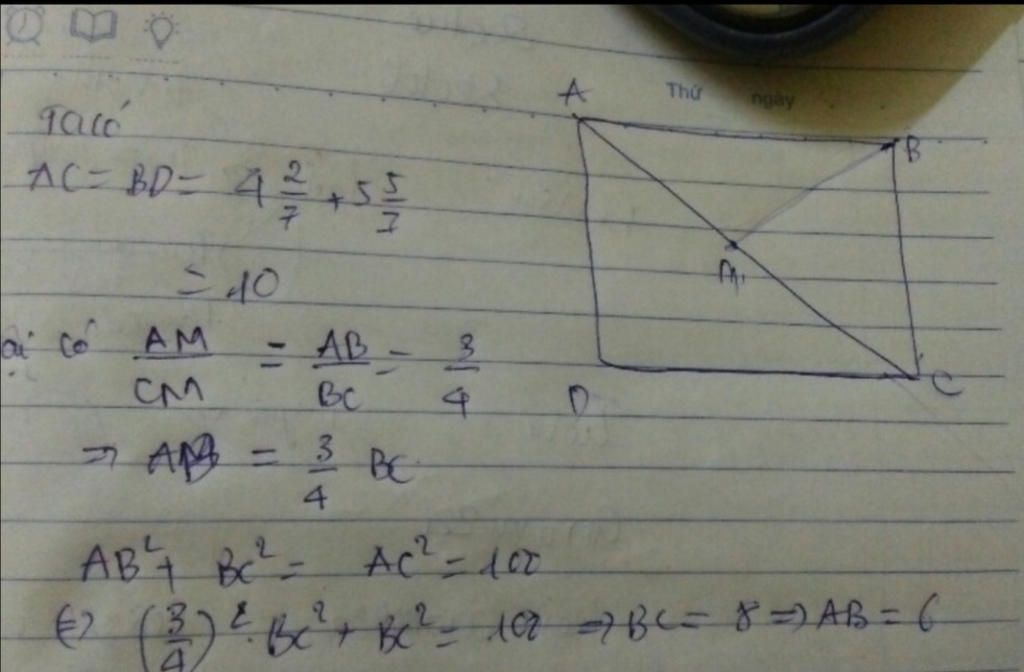 Thứ ngày
Ta có
AC = BD = 4 2/7 + 5 5/7
= 10
ại có AM/CM = AB/BC = 3/4
=> AB = 3/4 BC
AB² + BC² = AC² = 100
<=> (3/4)².BC² + BC² = 100 => BC = 8 => AB = 6
A
B
M
D
C